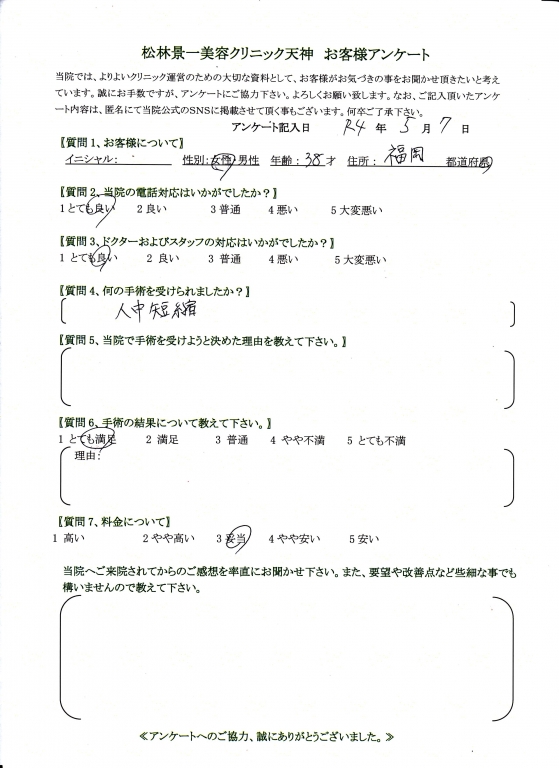 松林景一美容クリニック天神　お客様アンケート
当院では、よりよいクリニック運営のための大切な資料として、お客様がお気づきの事をお聞かせ頂きたいと考え
ています。誠にお手数ですが、アンケートにご協力下さい。よろしくお願い致します。なお、ご記入頂いたアンケ
ート内容は、匿名にて当院公式のSNSに掲載させて頂く事もございます。何卒ご了承下さい。
アンケート記入日　R4 年 5 月 7 日
【質問1、お客様について】
イニシャル：　　　性別：女性・男性　年齢：38才　住所：福岡　都道府県
【質問2、当院の電話対応はいかがでしたか？】
1とても良い　2良い　3普通　4悪い　5大変悪い
【質問3、ドクターおよびスタッフの対応はいかがでしたか？】
1とても良い　2良い　3普通　4悪い　5大変悪い
【質問4、何の手術を受けられましたか？】
人中短縮
【質問5、当院で手術を受けようと決めた理由を教えて下さい。】
【質問6、手術の結果について教えて下さい。】
1とても満足　2満足　3普通　4やや不満　5とても不満
理由：
【質問7、料金について】
1高い　2やや高い　3妥当　4やや安い　5安い
当院へご来院されてからのご感想を率直にお聞かせ下さい。また、要望や改善点など些細な事でも
構いませんので教えて下さい。
≪アンケートへのご協力、誠にありがとうございました。≫